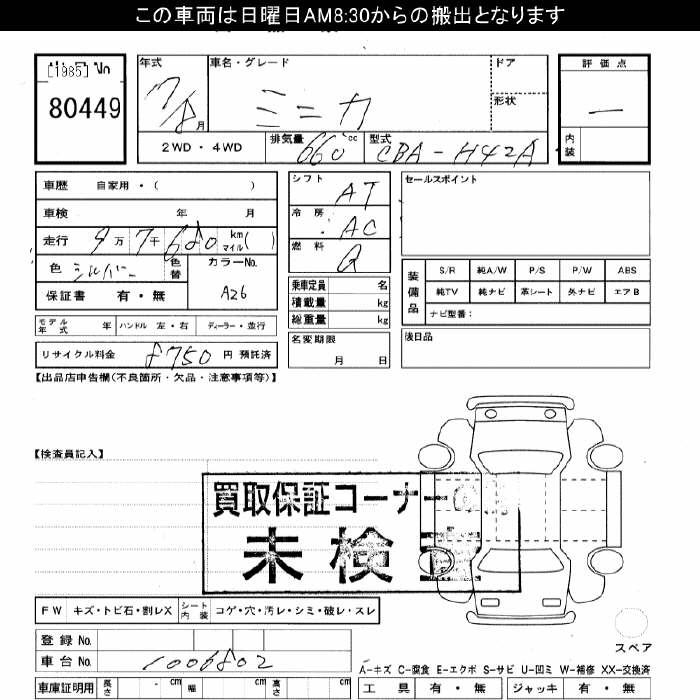 この車両は日曜日AM8:30からの搬出となります
[1985] No
80449
年式
17/8月
車名・グレード
ミニカ
ドア
形状
評価点
—
内装
2WD・4WD
排気量
660cc
型式
CBA-H42A
車歴 自家用・( )
車検 年 月
走行 9万7千680 km マイル ( )
色 シルバー 色替
カラーNo.
A26
保証書 有・無
シフト
AT
冷房
AC
燃料
G
乗車定員 名
積載量 kg
総重量 kg
セールスポイント
装備品
S/R 純A/W P/S P/W ABS
純TV 純ナビ 革シート 外ナビ エアB
ナビ型番：
モデル年式 年 ハンドル 左・右 ディーラー・並行
名変期限
月 日
後日品
リサイクル料金 8750 円 預託済
【出品店申告欄(不良箇所・欠品・注意事項等)】
【検査員記入】
買取保証コーナー
未検
FW キズ・トビ石・割レX シート内装 コゲ・穴・汚レ・シミ・破レ・スレ
登録 No.
車台 No. 1006802
スペア
A-キズ C-腐食 E-エクボ S-サビ U-凹ミ W-補修 XX-交換済
車庫証明用 長さ - cm 幅 - cm 高さ cm
工具 有・無 ジャッキ 有・無